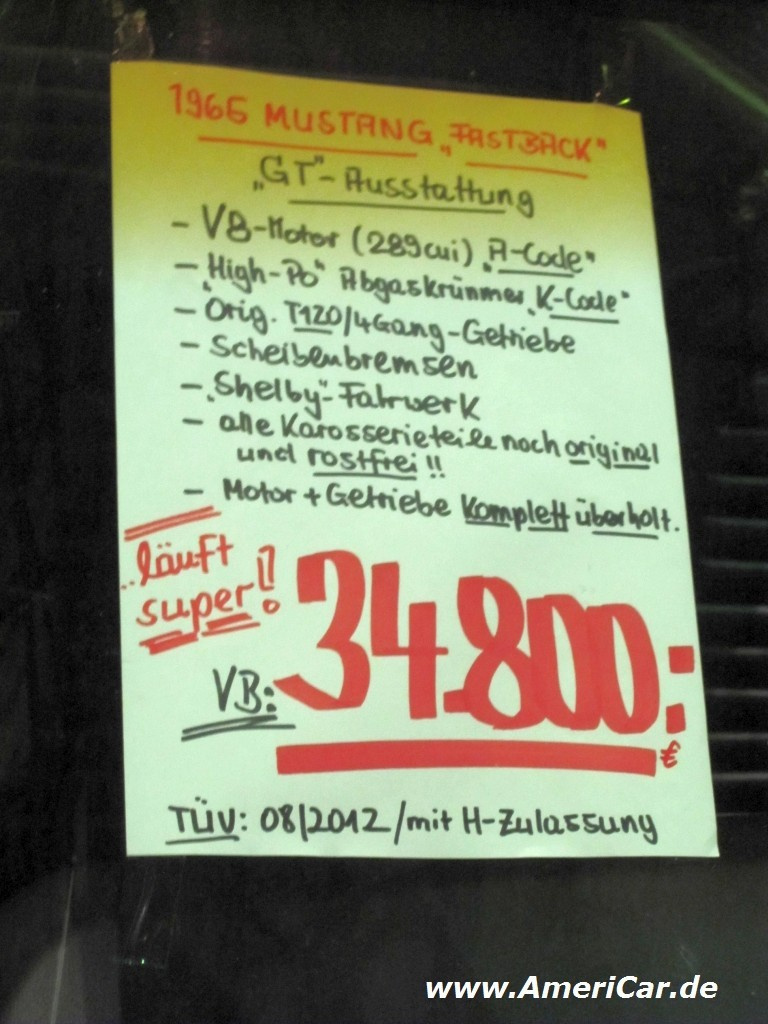 1966 MUSTANG „FASTBACK"
„GT"-Ausstattung
- V8-Motor (289cui) „A-Code"
- „High-Po" Abgaskrümmer „K-Code"
- Orig. T120/4Gang-Getriebe
- Scheibenbremsen
- „Shelby"-Fahrwerk
- alle Karosserieteile noch original
und rostfrei!!
- Motor + Getriebe komplett überholt.
..läuft
super!!
VB: 34.800:
€
TÜV: 08/2012/mit H-Zulassung
www.AmeriCar.de